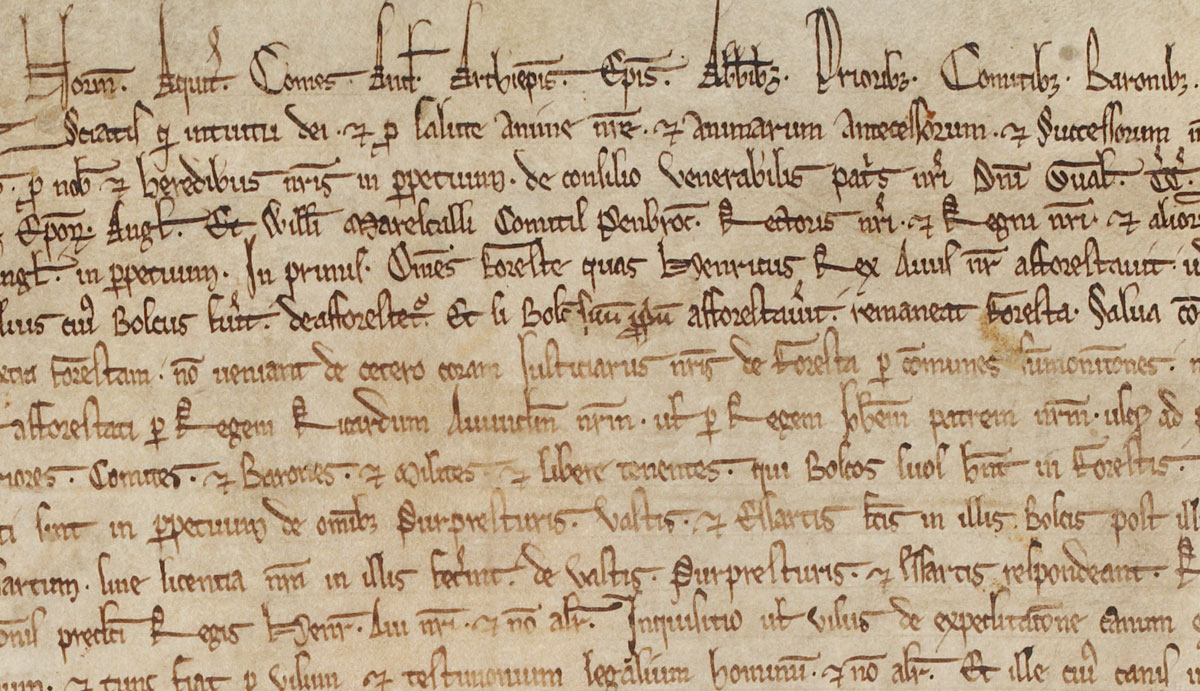 Norm̃. Aquit̃. Comes And̃. Archiep̃is. Ep̃is. Abb̃ibꝫ. Prioribꝫ. Comitibꝫ. Baronibꝫ.
Sciatis qđ intuitu dei ⁊ p̱ salute anime nr̃e ⁊ animarum Antecessorum ⁊ Successorum
p̱ nob̃ ⁊ heredibus nr̃is in ꝑpetuum. de consilio venerabilis patris nr̃i Dñi Gual̃.
Ep̃oꝝ. Angl̃. Et Will̃i Marescalli Comitis Penbroc̃. Rectoris nr̃i ⁊ Regni nr̃i ⁊ alior
in ꝑpetuum. In primis. Om̃es foreste quas Henricus Rex Auus nr̃ afforestauit.
cui᷒ Boscus fũit. deafforestet᷑. Et si Bosc̃ suũ ꝓp̃ũ afforestau̾it. remaneat foresta. Salua
forestam. nõ ueniant de cetero coram Justiciariis nr̃is de foresta ꝑ cõmunes sũmonitiones.
afforestati ꝑ Regem Ricardum Auunc̃lm nr̃m. ul̃ ꝑ Regem Joh̃em patrem nr̃m. usqꝫ ad
Comites. ⁊ Barones. ⁊ Milites ⁊ libere tenentes. qui Boscos suos hñt in forestis.
sint in ꝑpetuum de om̃ibꝫ Purpresturis. Vastis. ⁊ Essartis fc̃is in illis Boscis post
sine licentia nr̃a in illis fec̾int. de Vastis. Purpresturis. ⁊ Essartis respondeant.
predc̃i Regis Henr̃. Aui nr̃i. ⁊ nõ alr̃. Inquisitio ul̃ uisus de expeditatõne canum
⁊ tunc fiat ꝑ visum ⁊ testimonium legalium hominũ. ⁊ nõ alr̃. Et ille cui᷒ canis